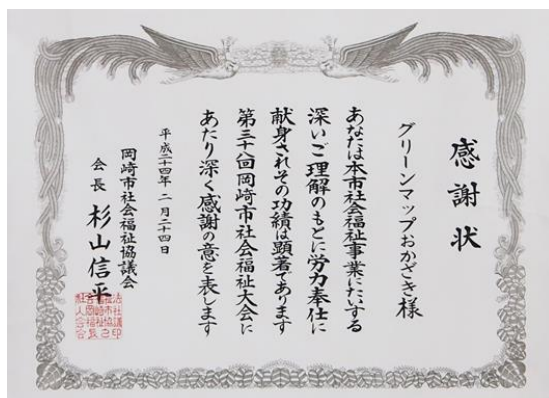 感謝状
グリーンマップおかざき様
あなたは本市社会福祉事業にたいする
深いご理解のもとに労力奉仕に
献身されその功績は顕著であります
第三十回岡崎市社会福祉大会に
あたり深く感謝の意を表します
平成二十四年二月二十四日
岡崎市社会福祉協議会
会長 杉山信平